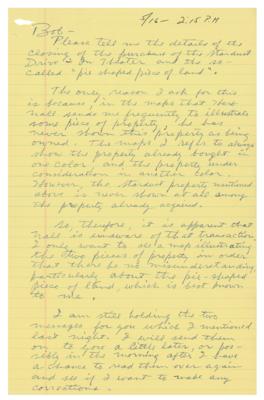 5/16 - 2:15 PM
Bob -
Please tell me the details of the
closing of the purchase of the Stardust
Drive-In Theater and the so-
called "pie shaped piece of land".
The only reason I ask for this
is because, in the maps that
Nall sends me frequently to illustrate
some piece of property, he has
never shown this property as being
owned. The maps I refer to always
show the property already bought in
one color, and the property under
consideration in another color.
However, the Stardust property mentioned
above is never shown at all among
the property already acquired.
So, therefore, it is apparent that
Nall is unaware of that transaction.
I only want to see a map illustrating
the two pieces of property in order
that there be no misunderstanding,
particularly about the pie-shaped
piece of land, which is best known
to me.
I am still holding the two
messages for you which I mentioned
last night. I will send them
on to you a little later, or pos-
sibly in the morning after I have
a chance to read them over again
and see if I want to make any
corrections.